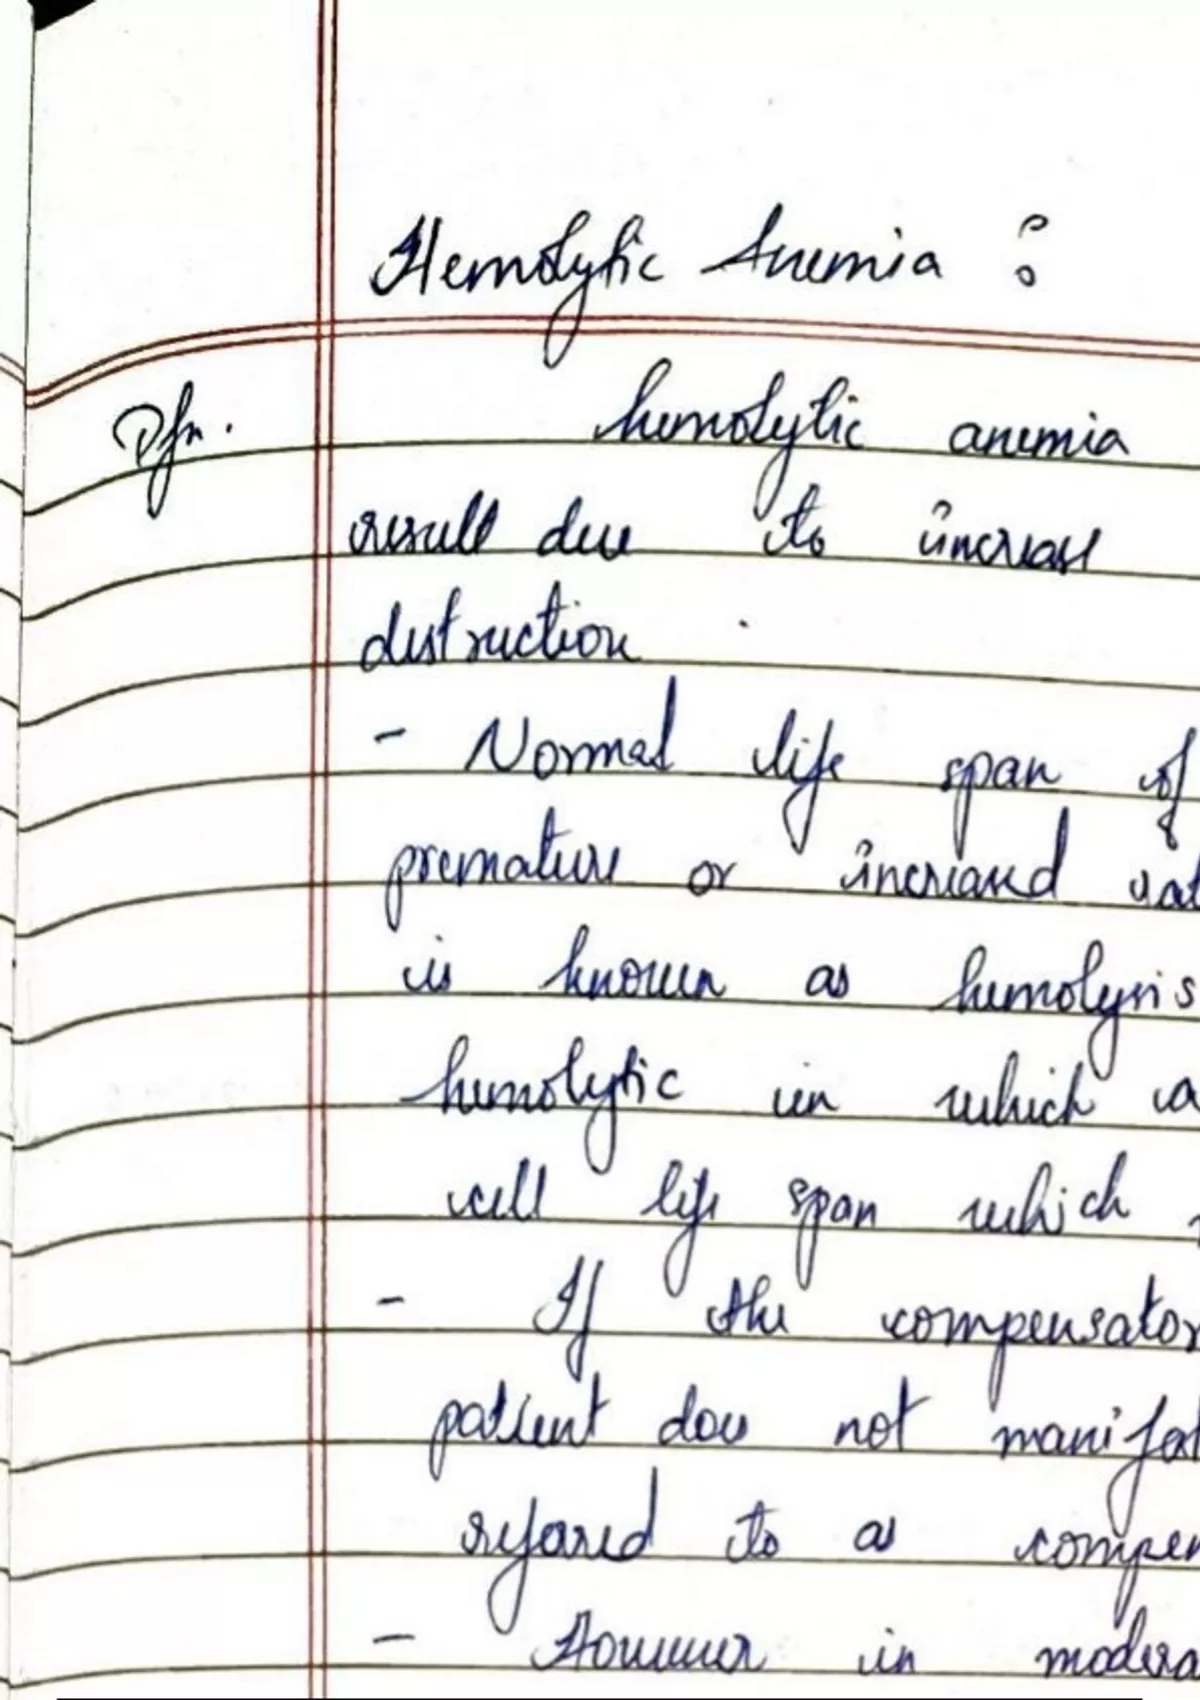 Hemolytic Anemia :
Dfn. hemolytic anemia
result due to increase
destruction
- Normal life span of
premature or increased rat
is known as hemolysis
hemolytic in which a
cell life span which
- If the compensator
patient does not manifest
refared to as compen
- However in modera